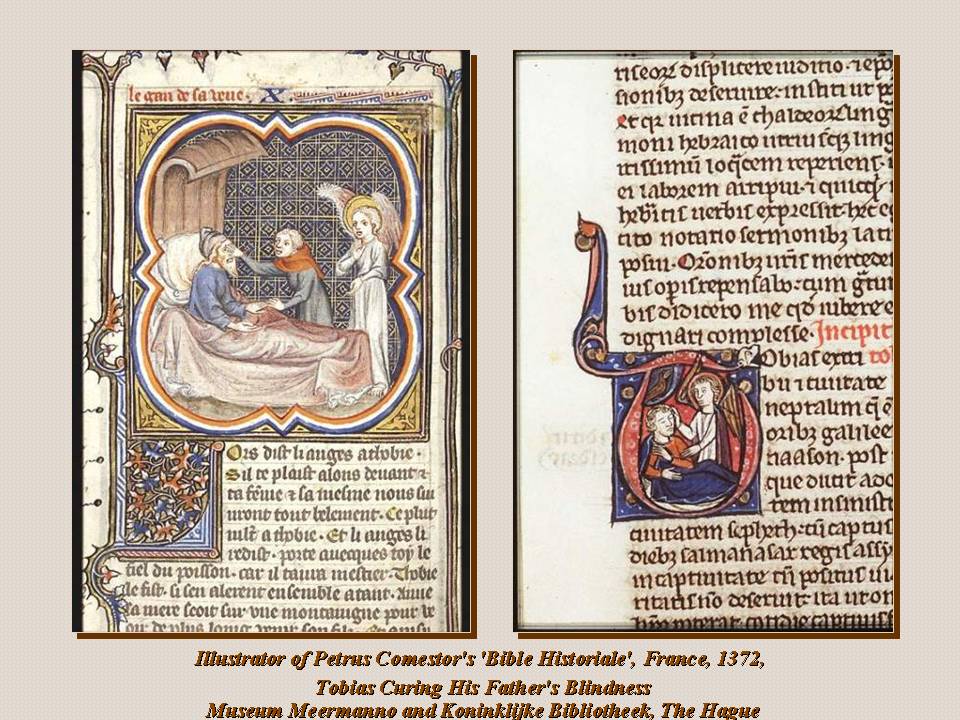 le gan de sa veue. X.
Ors dist li anges a thobie.
Sil te plaist alons deuant
ta feme & sa mesme nous sui
uront tout belement. Ce plut
mlt a thobie. Et li anges li
redist. porte auecques toy le
fiel du poisson. car il taura mestier. Thobie
le fist. si sen alerent ensemble atant. Anne
sa mere seoit sur vne montaigne pour ve
displicere iuditio.
sionibz deseruire. instituit
et qr uicina e chaldeorz
moni hebraico utriusqz
ritissimu loqcem reperiens.
ei laborem arripui.
uerbis expressit. hec
cito notario sermonibz lati
posui. Oronibz uris mercede
ius opis repensabo. cum
bis didicero me qd iubere
dignati complesse. Incipit
Obias
bu ciuitate
neptalim q e
oribz galilee
naason. post
que ducit
tem in sinist
ciuitatem sepheth. cu captus
diebz salmanasar regis assy
in captiuitate tn positus
ritatis no deseruit. ita ut
Illustrator of Petrus Comestor's 'Bible Historiale', France, 1372,
Tobias Curing His Father's Blindness
Museum Meermanno and Koninklijke Bibliotheek, The Hague